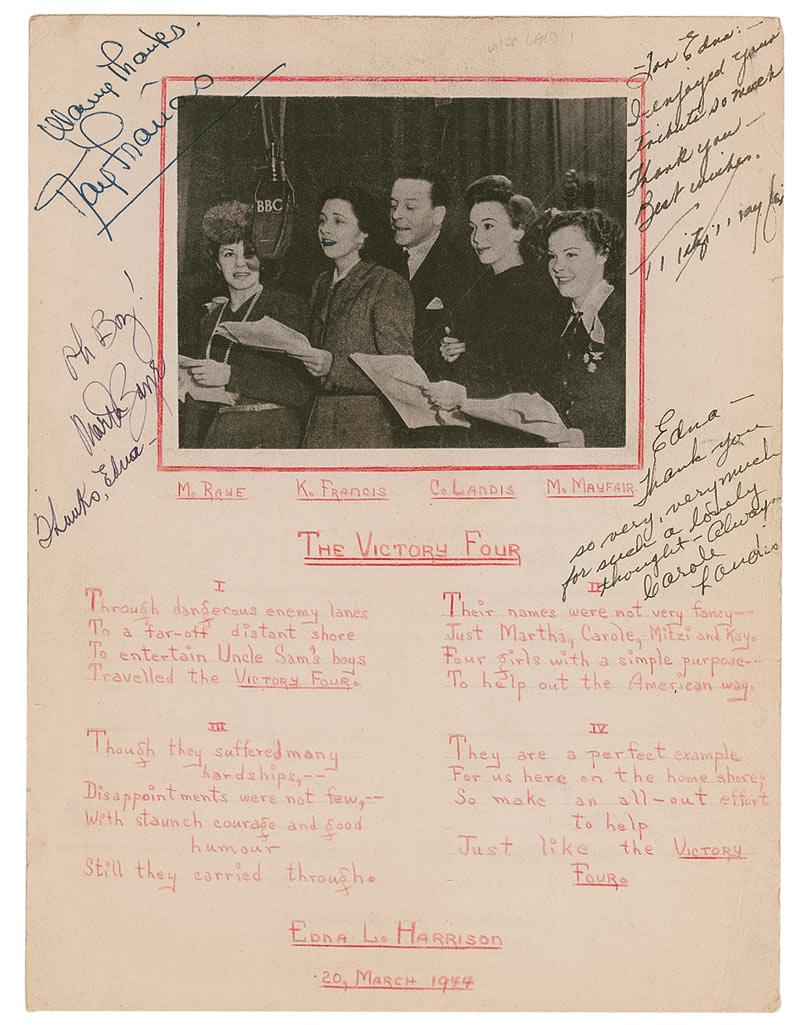 Many Thanks.
Kay Francis
For Edna:—
I enjoyed your
tribute so much
Thank you —
Best wishes,
Mitzi Mayfair
BBC
Oh Boy!
Martha Raye
Thanks, Edna —
Edna —
Thank you
so very, very much
for such a lovely
thought – Always
Carole
Landis
M. RAYE K. FRANCIS C. LANDIS M. MAYFAIR
THE VICTORY FOUR
I
Through dangerous enemy lanes
To a far-off distant shore
To entertain Uncle Sam's boys
Travelled the VICTORY FOUR.
II
Their names were not very fancy--
Just Martha, Carole, Mitzi and Kay.
Four girls with a simple purpose--
To help out the American way.
III
Though they suffered many
hardships,--
Disappointments were not few,--
With staunch courage and good
humour
Still they carried through.
IV
They are a perfect example
For us here on the home shore;
So make an all-out effort
to help
Just like the VICTORY
FOUR.
EDNA L. HARRISON
20, MARCH 1944